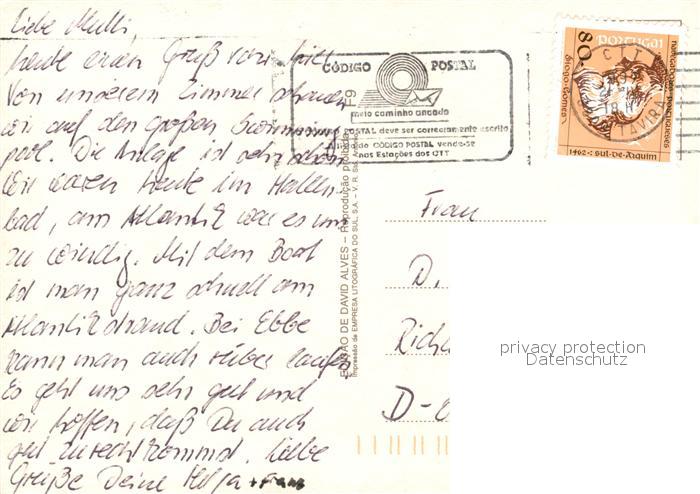 Liebe Mutti,
heute einen Gruß von hier.
Von unserem Zimmer schauen
wir auf den großen Swimming
pool. Die Anlage ist sehr schön
Wir waren heute im Hallen
bad, am Atlantik war es uns
zu windig. Mit dem Boot
ist man ganz schnell am
Atlantikstrand. Bei Ebbe
kann man auch rüber laufen
Es geht uns sehr gut und
wir hoffen, daß Du auch
gut zurechtkommst. Liebe
Grüße Deine Helga + Hans
CÓDIGO POSTAL
meio caminho andado
POSTAL deve ser correctamente escrito
CÓDIGO POSTAL vende-se
nas Estações dos CTT
F9
EDIÇÃO DE DAVID ALVES – Reprodução proibida
Impressão de EMPRESA LITOGRÁFICA DO SUL, S.A. – V. R. Sto.
PORTUGAL
80.-
navegadores portugueses
diogo gomes
1462 : sul-de-Arguim
CTT
TAVIRA
Frau
D.
Rich
D-
privacy protection
Datenschutz